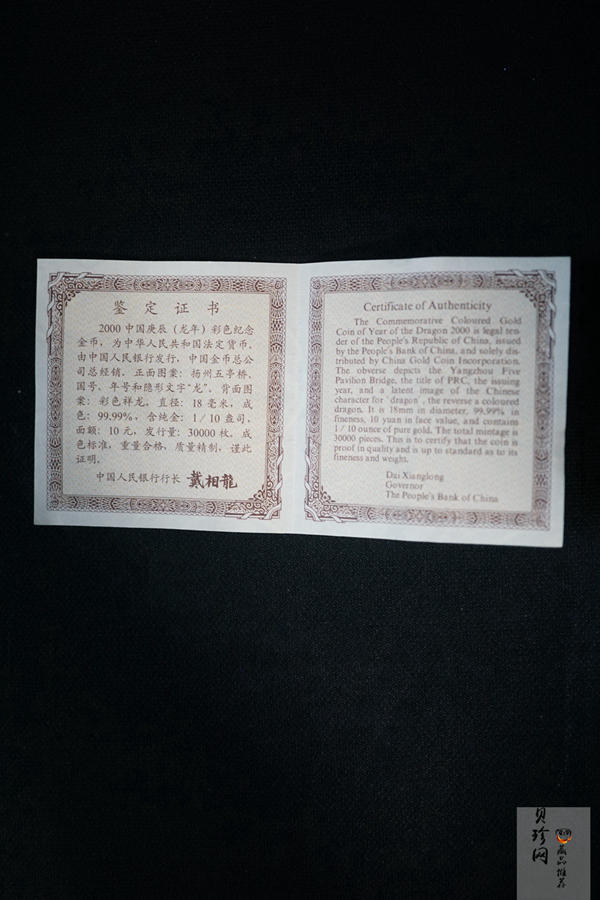 鉴定证书
2000中国庚辰（龙年）彩色纪念
金币，为中华人民共和国法定货币．
由中国人民银行发行，中国金币总公
司总经销．正面图案：扬州五亭桥、
国号、年号和隐形文字“龙”．背面图
案：彩色祥龙．直径：18毫米，成
色：99.99%，含纯金：1/10盎司，
面额：10元，发行量：30000枚．成
色标准，重量合格，质量精制，谨此
证明．
中国人民银行行长 戴相龍
Certificate of Authenticity
The Commemorative Coloured Gold
Coin of Year of the Dragon 2000 is legal ten-
der of the People's Republic of China, issued
by the People's Bank of China, and solely dis-
tributed by China Gold Coin Incorporation.
The obverse depicts the Yangzhou Five
Pavilion Bridge, the title of PRC, the issuing
year, and a latent image of the Chinese
character for `dragon´, the reverse a coloured
dragon. It is 18mm in diameter, 99.99% in
fineness, 10 yuan in face value, and contains
1/10 ounce of pure gold. The total mintage is
30000 pieces. This is to certify that the coin is
proof in quality and is up to standard as to its
fineness and weight.
Dai Xianglong
Governor
The People's Bank of China
贝珍网
藏品推荐